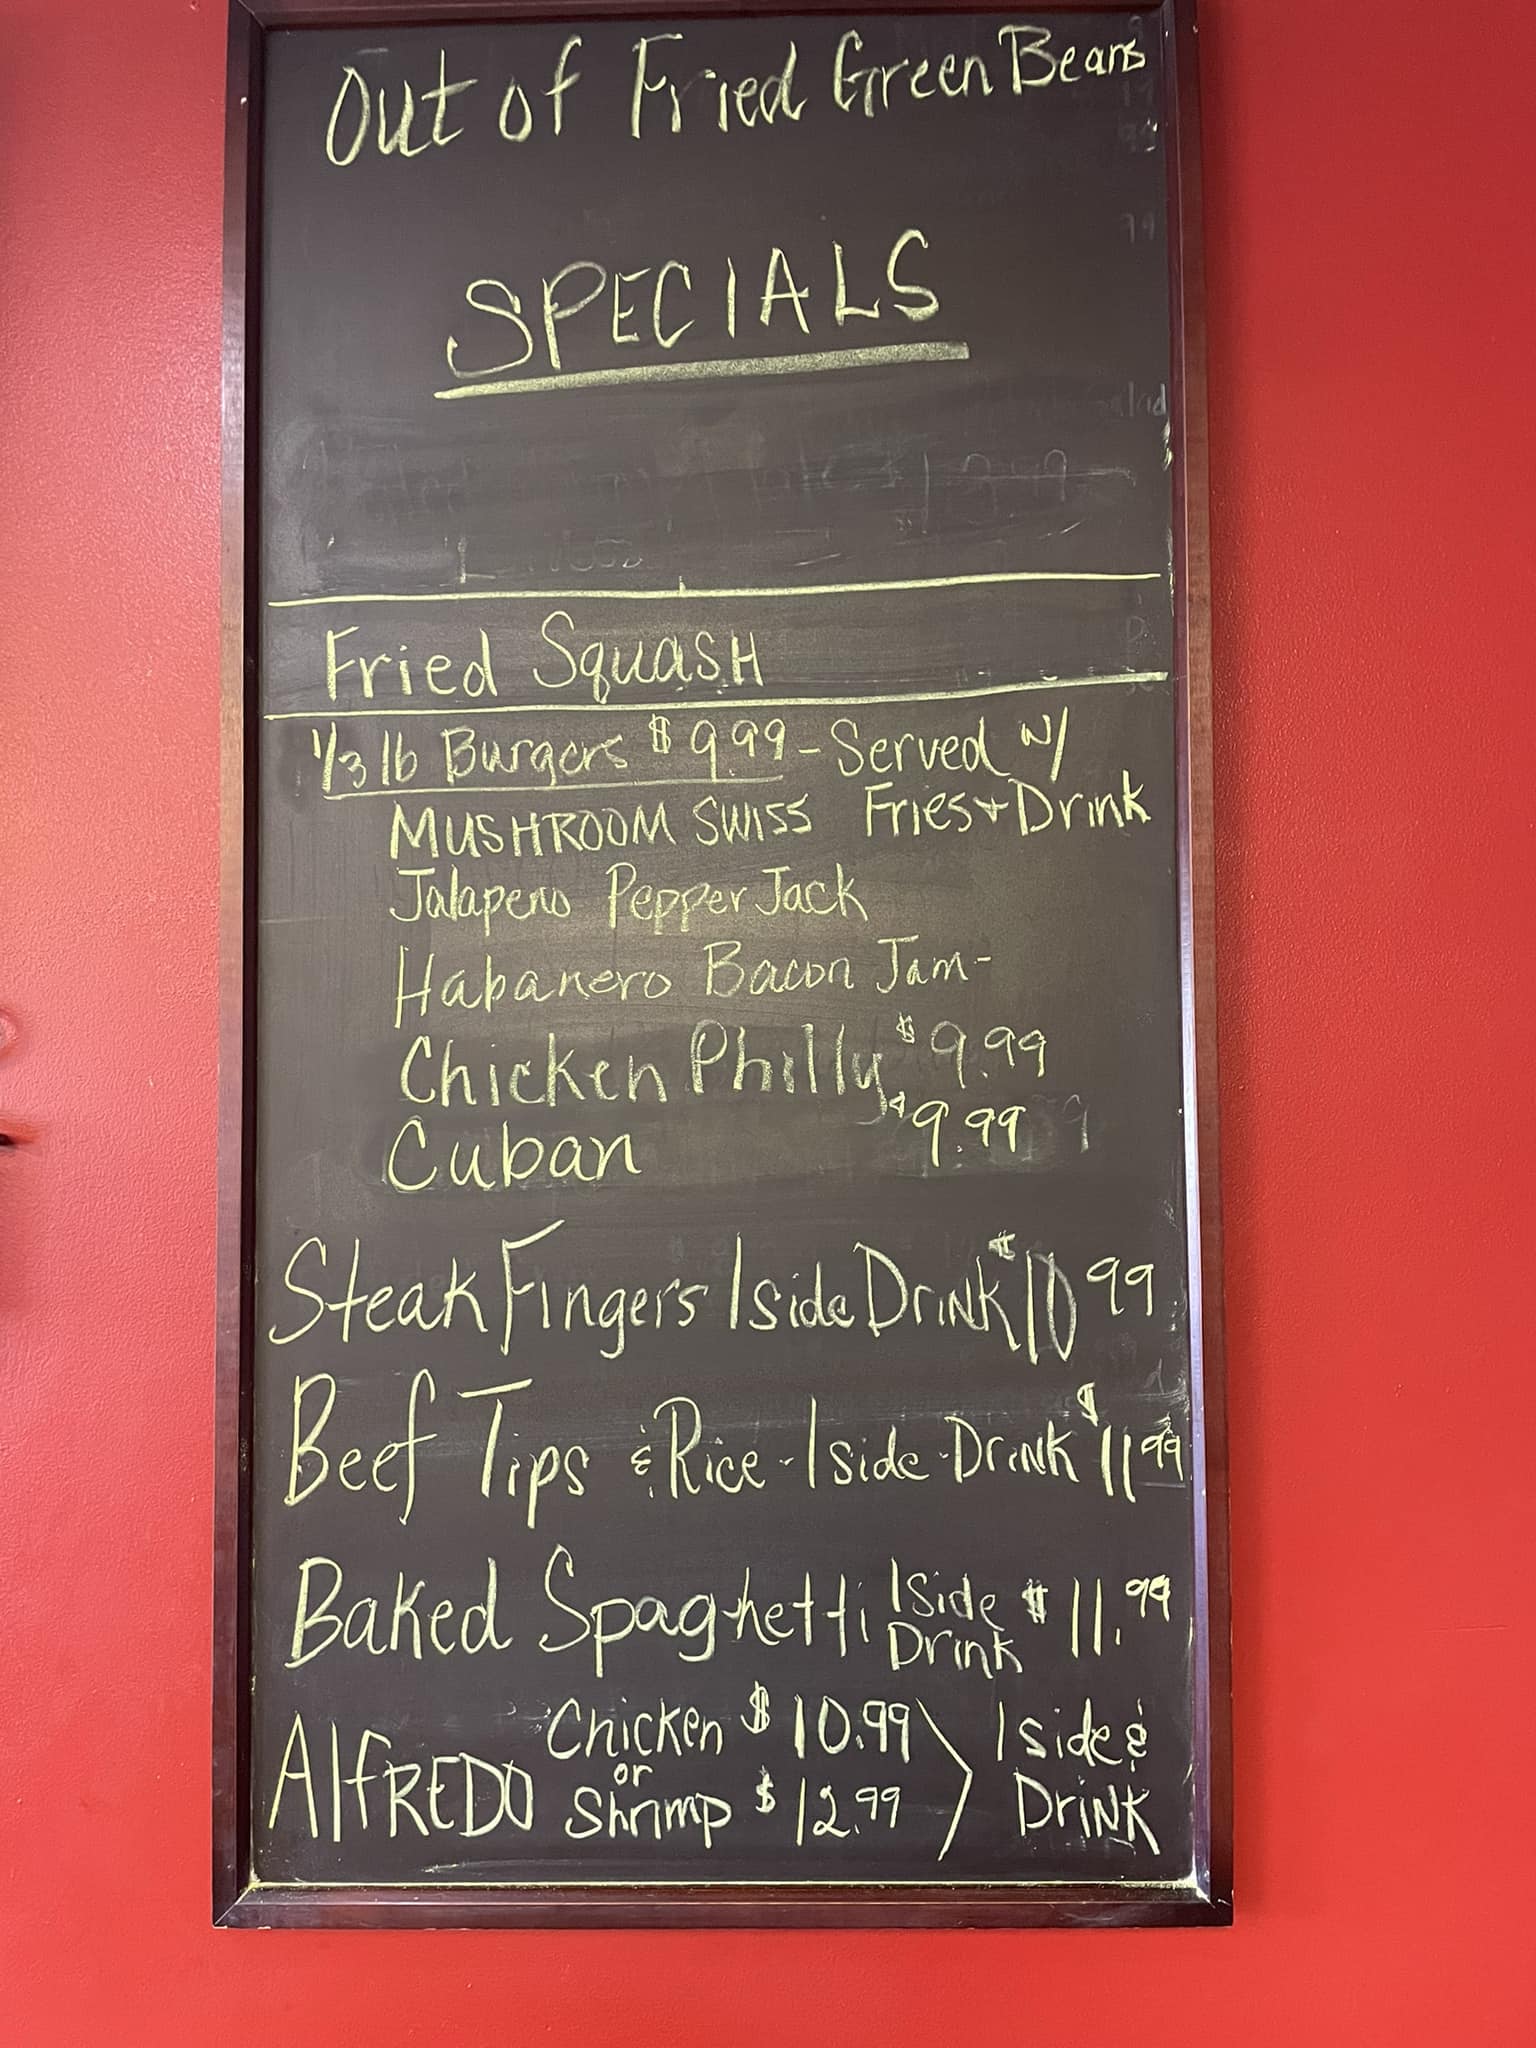 Out of Fried Green Beans
SPECIALS
Fried Squash
1/3 lb Burgers $9.99 - Served w/
MUSHROOM SWISS Fries + Drink
Jalapeno Pepper Jack
Habanero Bacon Jam -
Chicken Philly $9.99
Cuban $9.99
Steak Fingers 1 side Drink $10 99
Beef Tips & Rice - 1 side - Drink $11 99
Baked Spaghetti 1 Side Drink $11.99
AlfREDO Chicken $10.99 or Shrimp $12.99 1 side & Drink